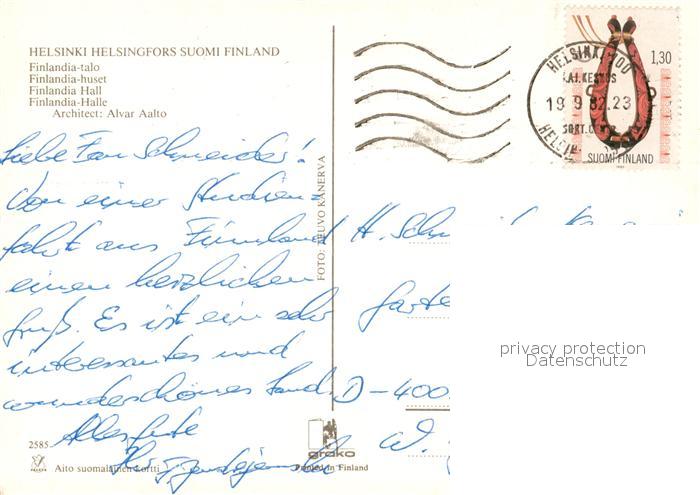 HELSINKI HELSINGFORS SUOMI FINLAND
Finlandia-talo
Finlandia-huset
Finlandia Hall
Finlandia-Halle
Architect: Alvar Aalto
Liebe Frau Schneider!
Von einer Studien-
fahrt aus Finnland
einen herzlichen
Gruß. Es ist ein sehr
interessantes und
wunderschönes Land.
Alles Gute
2585
Aito suomalainen kortti
FOTO: TEUVO KANERVA
grako
Printed in Finland
HELSINKI
19 9 82.23
1,30
SUOMI FINLAND
H. Sch
Garte
D-400
W.
privacy protection
Datenschutz